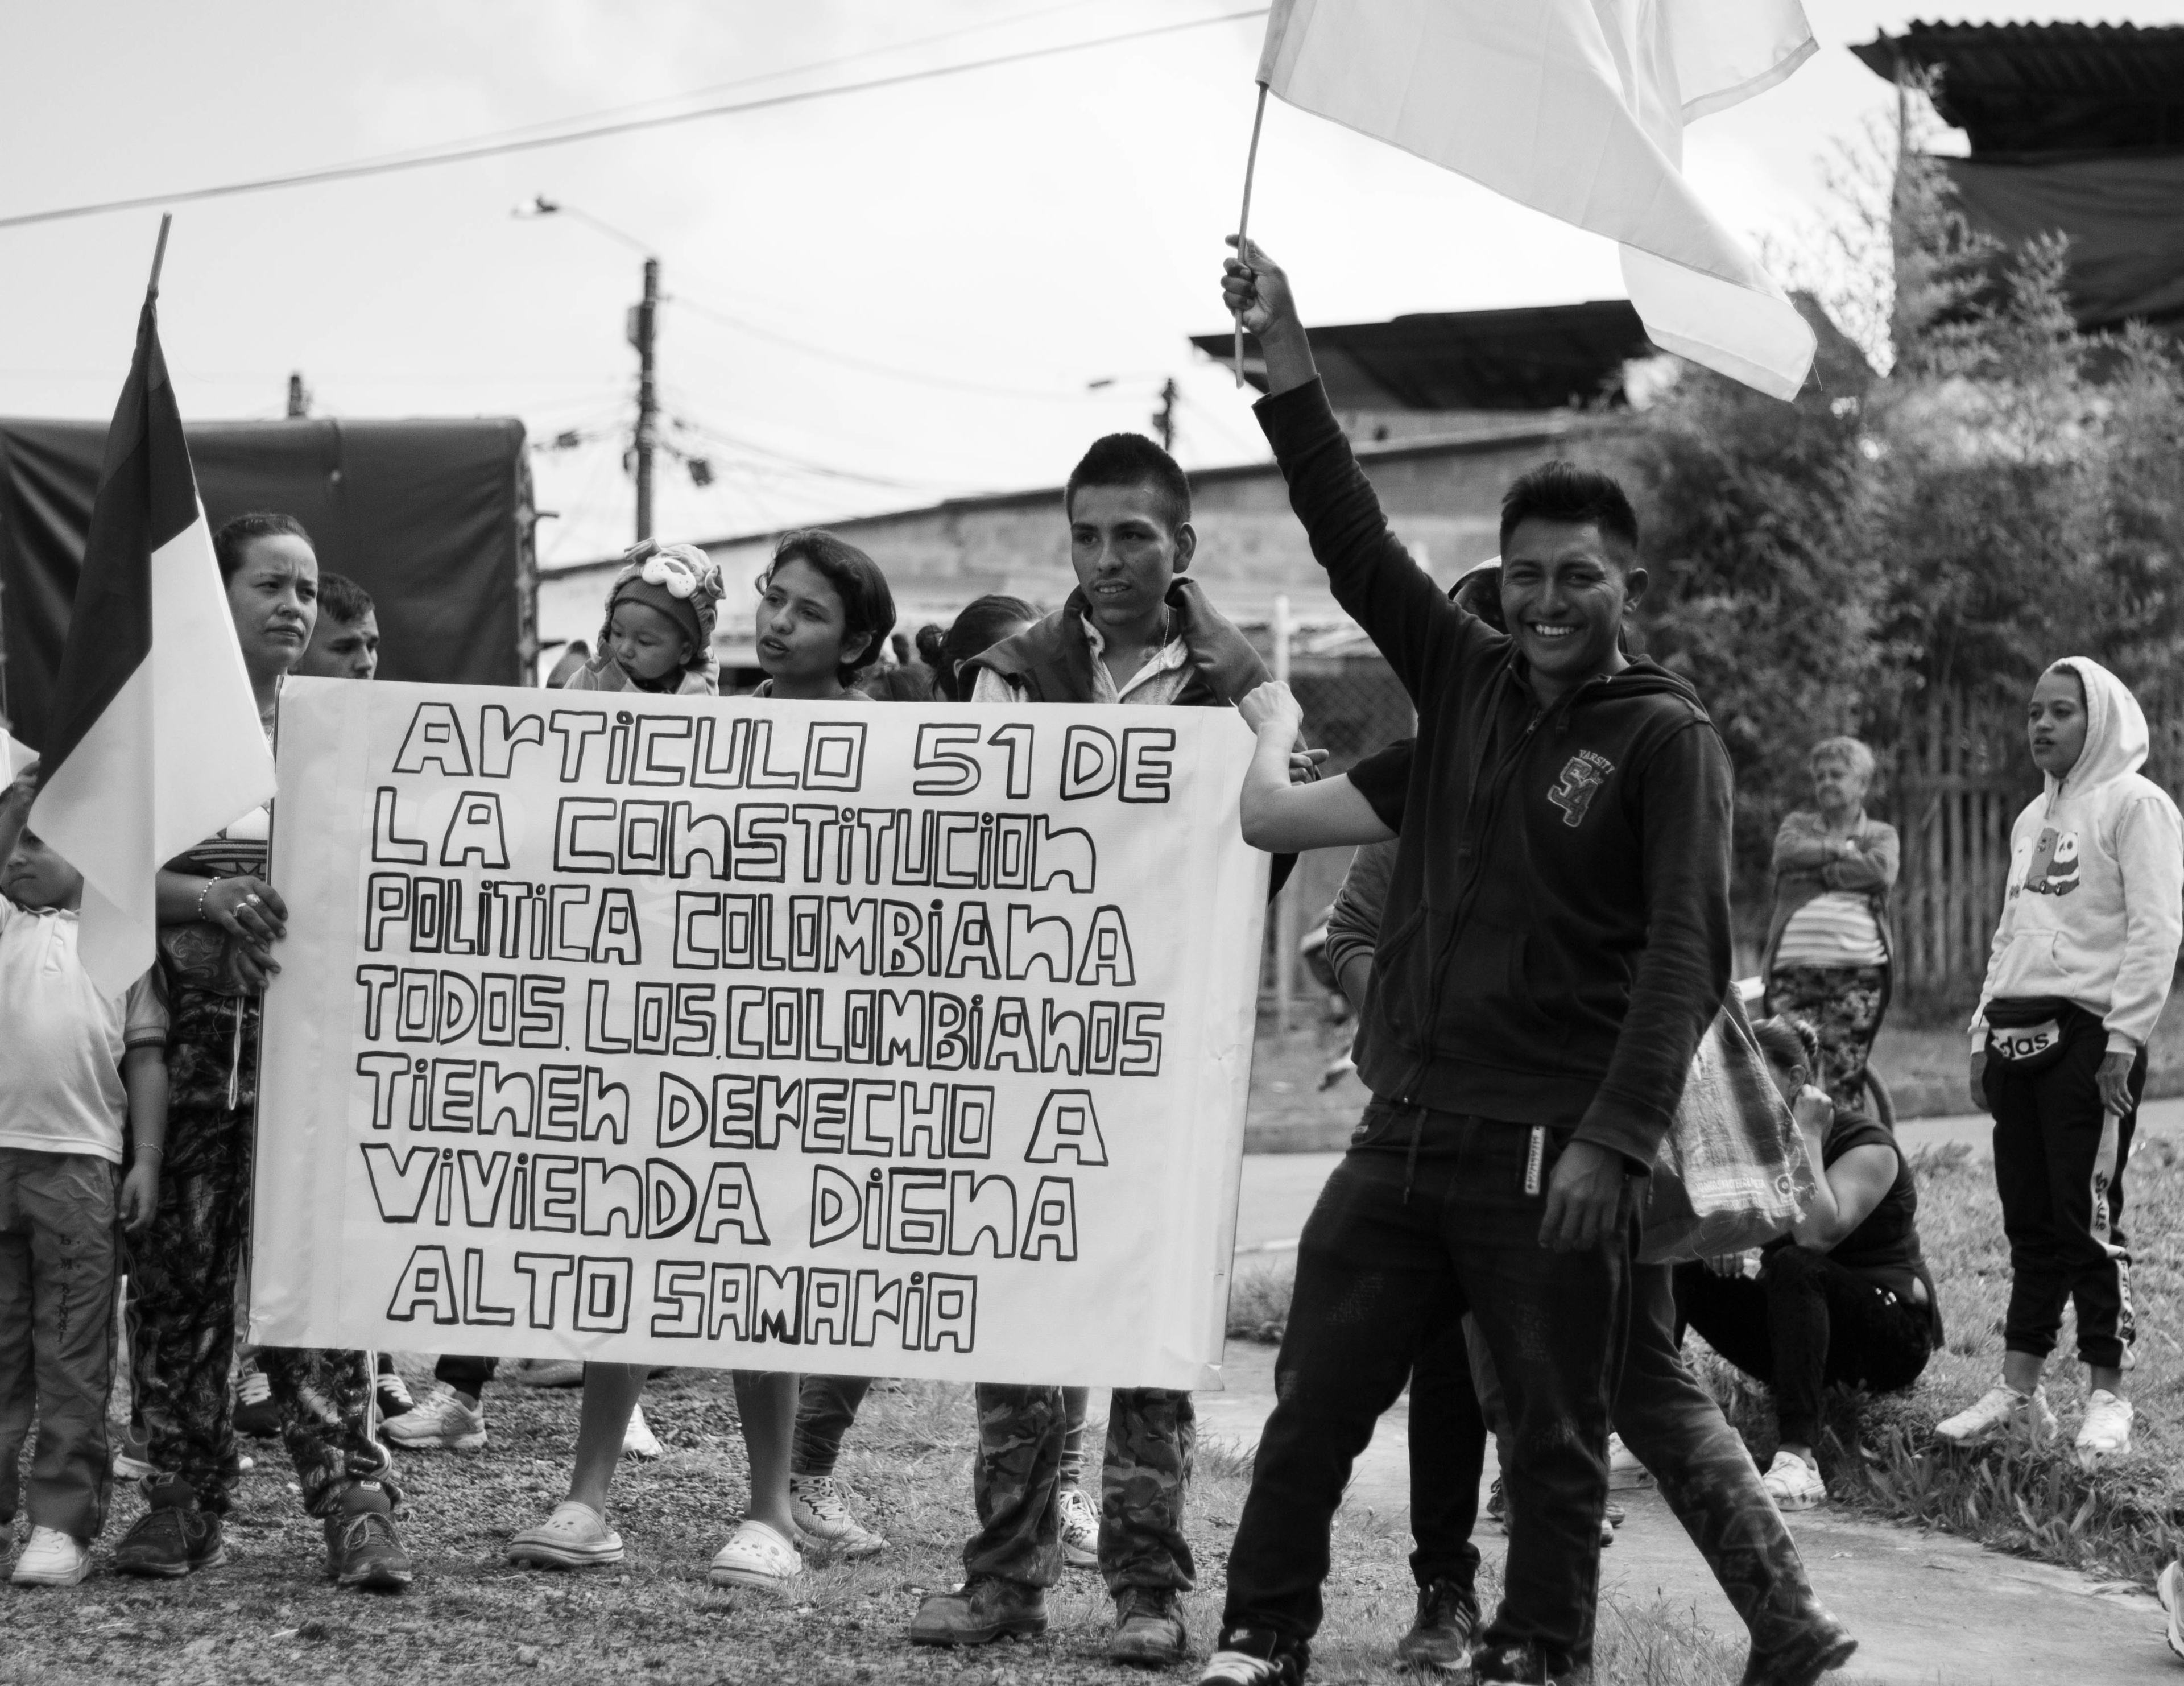 ARTICULO 51 DE
LA CONSTITUCION
POLITICA COLOMBIANA
TODOS. LOS. COLOMBIANOS
TIENEN DERECHO A
VIVIENDA DIGNA
ALTO SAMARIA
VARSITY
54
das